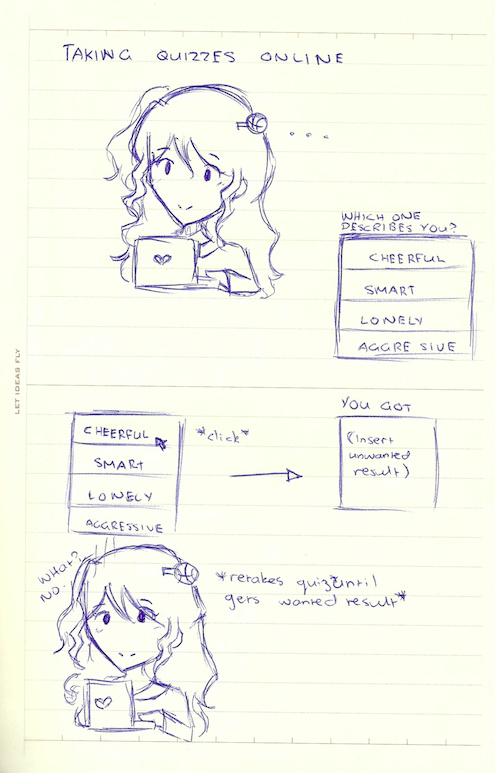 TAKING QUIZZES ONLINE
...
WHICH ONE
DESCRIBES YOU?
CHEERFUL
SMART
LONELY
AGGRESSIVE
LET IDEAS FLY
YOU GOT
CHEERFUL
*click*
(Insert
unwanted
result)
SMART
LONELY
AGGRESSIVE
WHAT?
NO.
*retakes quiz until
gets wanted result*